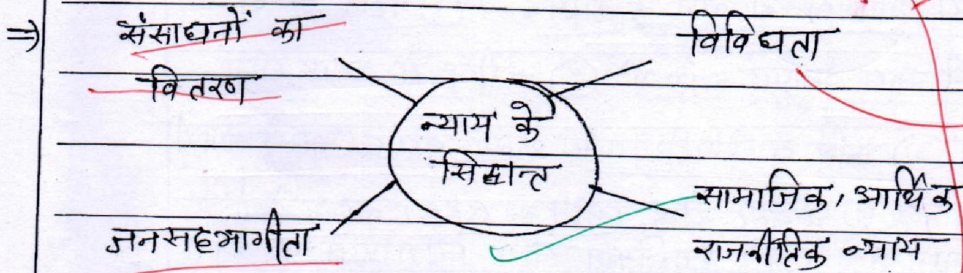 ⇒ संसाधनों का
वितरण
विविधता
न्याय के
सिद्धान्त
जनसहभागीता
सामाजिक, आर्थिक
राजनीतिक न्याय